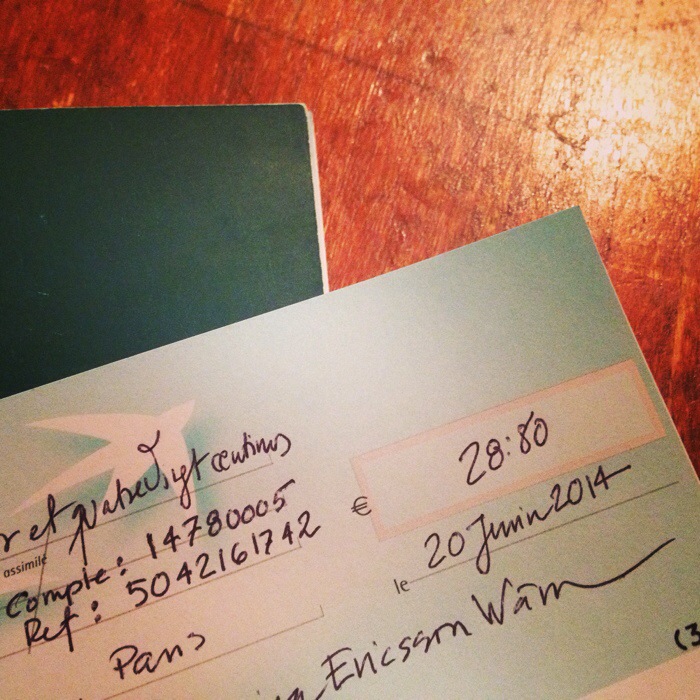 r et quatre Vigt centimes
28:80
€
assimilé
Compte: 14780005
Ref: 5042161742
20 Junin 2014
le
Paris
Ericsson Wärn
(3